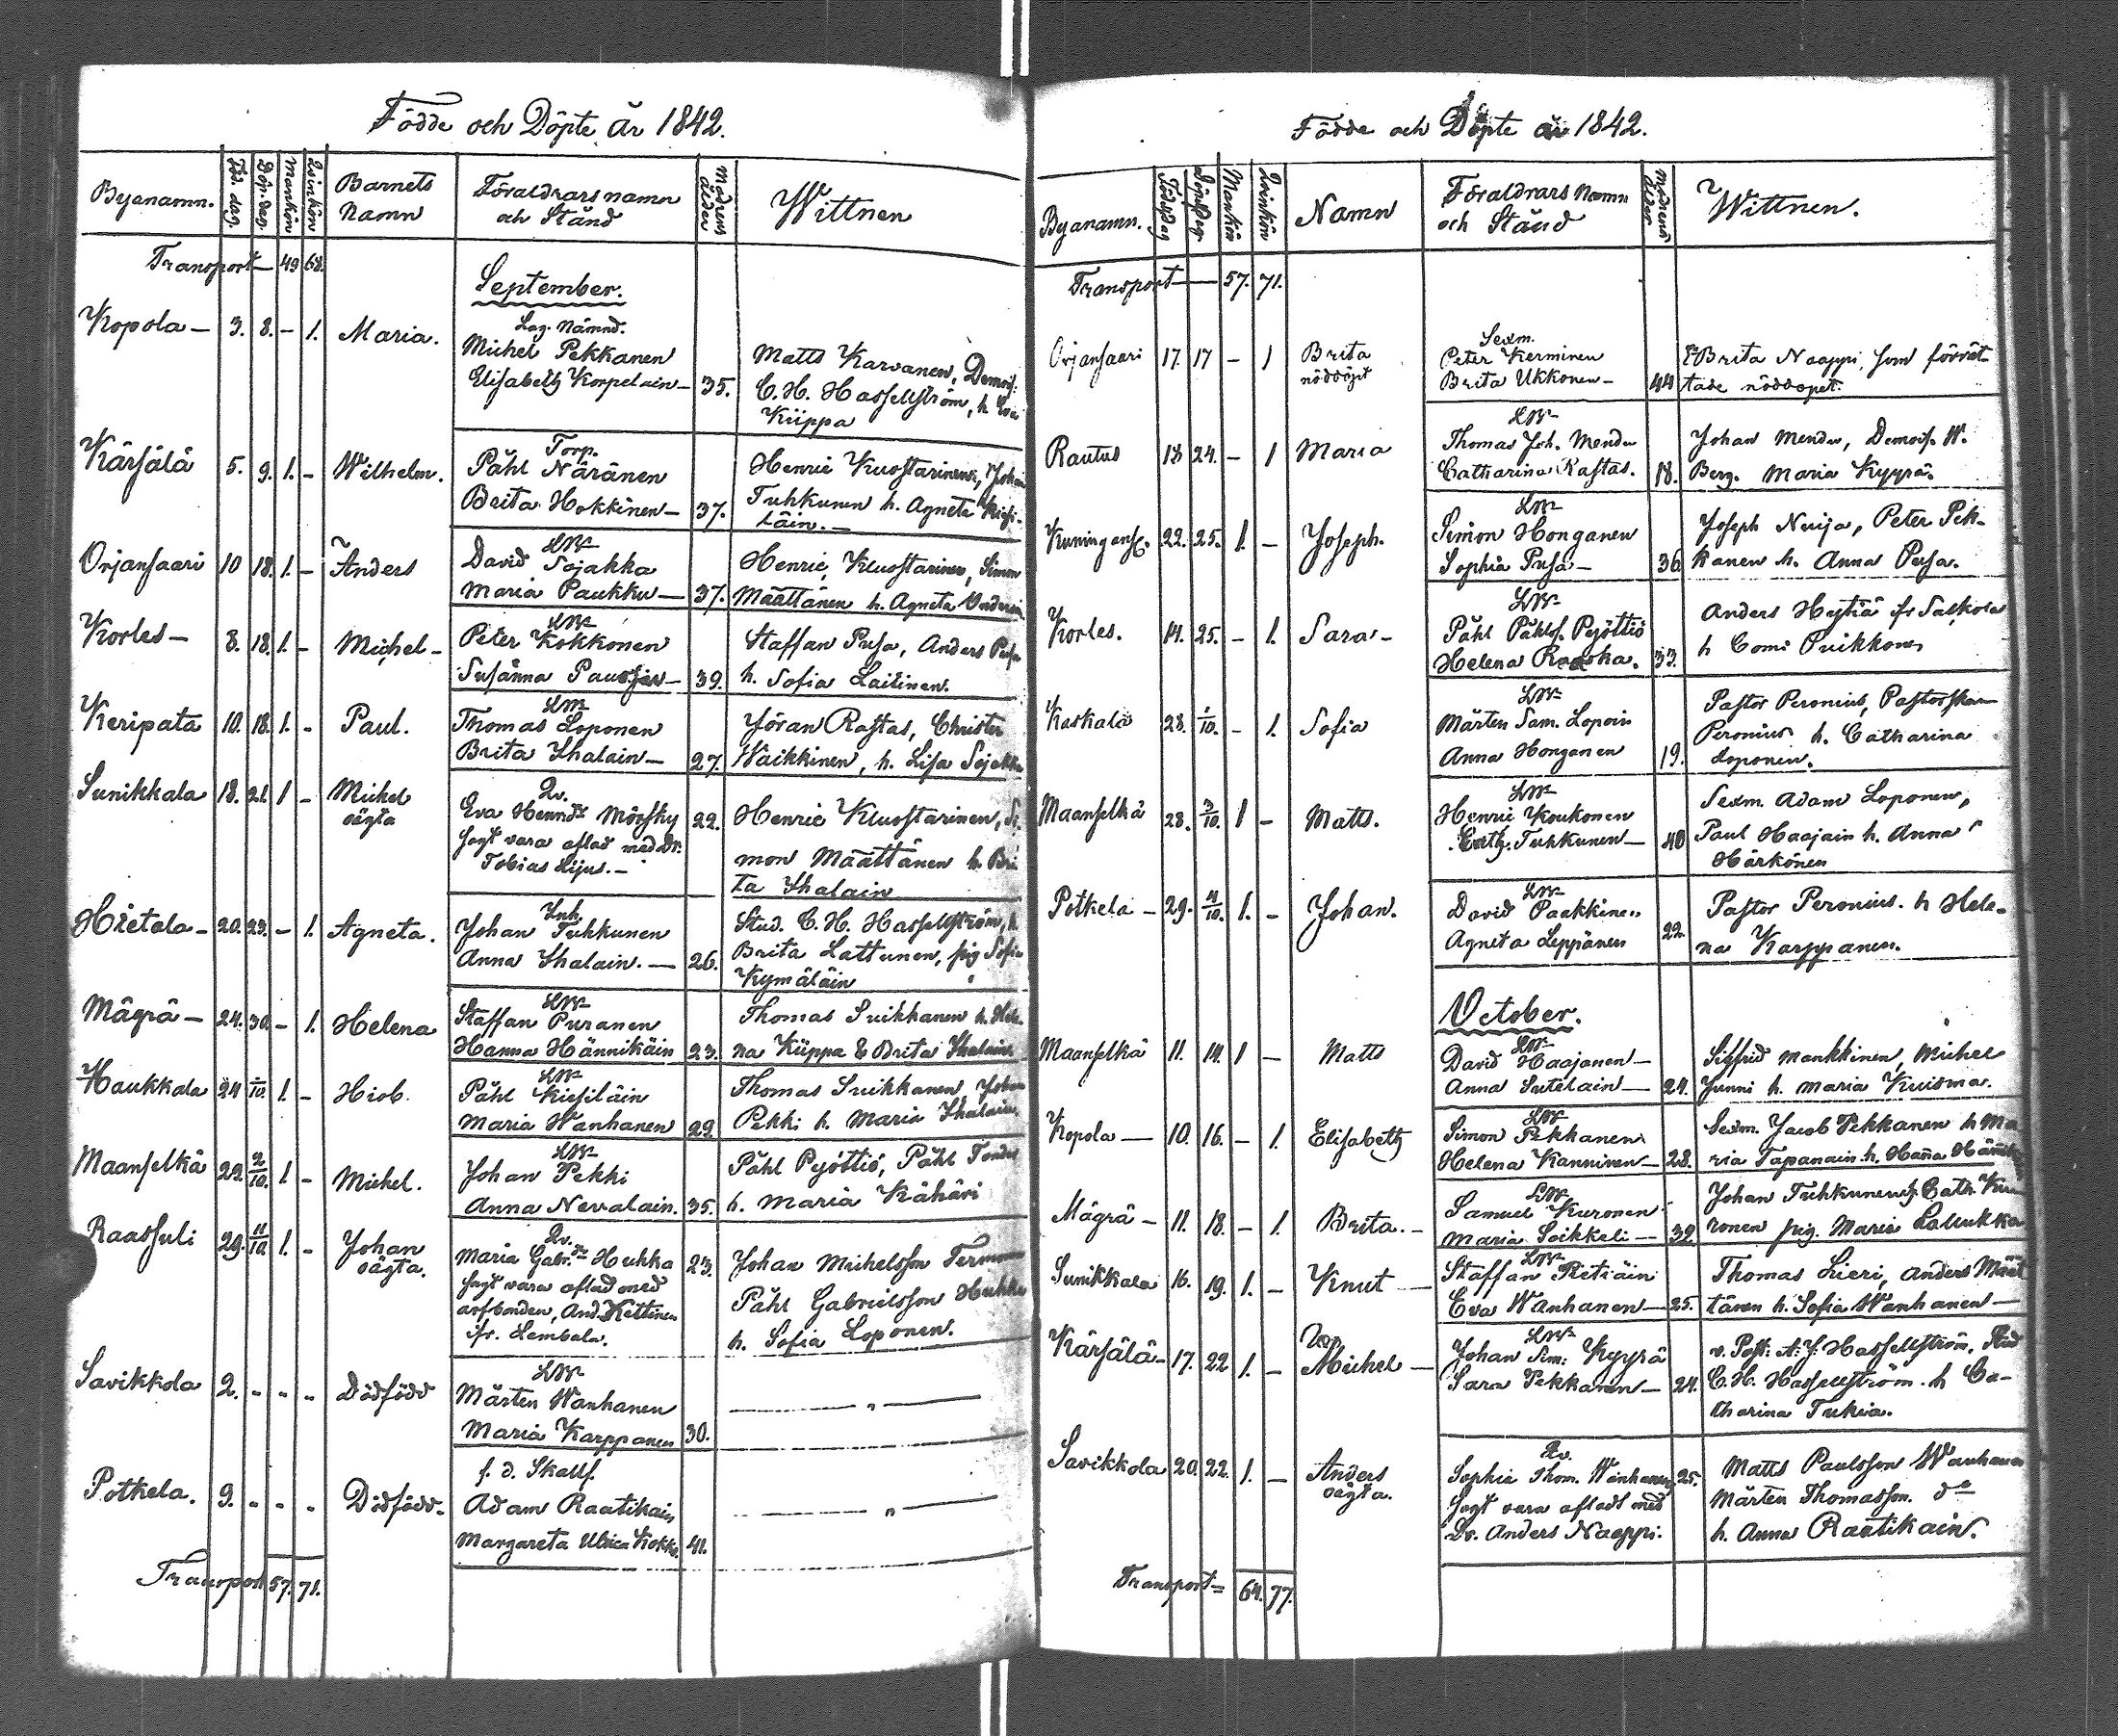 Födde och Döpte År 1842.
Byanamn. Föd. dag. Döp. dag. Mankön Qvinkön Barnets Namn Föräldrars namn och Stånd Modrens ålder Wittnen
Transport — 49 68.
September.
Kopola — 3. 8. — 1. Maria.
Lag. Nämnd.
Michel Pekkanen
Elisabeth Korpelain — 35.
Matts Karvanen, Demois.
C. H. Hasselström, h. Eva
Kiippa
Kärsälä 5. 9. 1. — Wilhelm.
Torp.
Påhl Näränen
Brita Hokkinen — 37.
Henric Kluostarinen, Johan
Tuhkunen h. Agneta Kiesi-
läin. —
Orjansaari 10 18. 1. — Anders
LB.
David Sojakka
Maria Paukku — 37.
Henric Kluostarinen, Simon
Määttänen h. Agneta
Korles — 8. 18. 1. — Michel —
LB.
Peter Kokkonen
Susanna — 39.
Staffan Pusa, Anders Pusa
h. Sofia Laitinen.
Keripata 10. 18. 1. — Paul.
LB.
Thomas Loponen
Brita Ihalain — 27.
Jöran Rastas, Christer
Waikkinen, h. Lisa Sojakka
Sunikkala 18. 21. 1 — Michel
oägta
Qv.
Eva Henricsdr Mörsky 22.
sagt vara aflad med Dr.
Tobias Lijus. —
Henric Kluostarinen, Si-
mon Määttänen h. Bri-
ta Ihalain
Hietala — 20. 23. — 1. Agneta.
Inh.
Johan Tuhkunen
Anna Ihalain. — 26.
Stud. C. H. Hasselström, h.
Brita Lattunen, pig. Sofia
Kymäläin
Mägrä — 24. 30. — 1. Helena
LB.
Staffan Puranen
Hanna Hännikäin 23.
Thomas Suikkanen h. Hele-
na Kiippa & Brita Ihalain
Haukkala 24 2/10. 1. — Hiob.
LB.
Påhl Kiesiläin
Maria Wanhanen 29.
Thomas Suikkanen, Johan
Pekki h. Maria Ihalain
Maanselkä 29. 2/10. 1. — Michel.
LB.
Johan Pekki
Anna Nevalain. 35.
Påhl Pyöttiö, Påhl
h. Maria Kähäri
Raassuli 29. 11/10. 1. — Johan
oägta.
Qv.
Maria Gabr.dr Huhka 23.
sagt vara aflad med
arfbonden, And. Kettinen
ifr. Lembala.
Johan Michelsson
Påhl Gabrielsson Huhka
h. Sofia Loponen.
Savikkola 2. - - - Dödfödd
LB.
Mårten Wanhanen
Maria Karppanen 30.
— " —
Potkela. 9. - - - Dödfödd.
f. d. Skallf.
Adam Raatikain
Margareta Ulrica Kokko. 41.
— " —
Transport 57. 71.
Födde och Döpte år 1842.
Byanamn. Födsdag Döpsdag Mankön Qvinkön Namn Föräldrars Namn och Stånd Modrens ålder Wittnen.
Transport — 57. 71.
Orjansaari 17. 17 — 1 Brita
nöddöpt
Sexm.
Peter Kerminen
Brita Ukkonen — 44
Brita Naappi, som förrät-
tade nöddopet.
Rautus 18 24. — 1 Maria
LB.
Thomas Joh. Mender
Catharina Rastas. 18.
Johan Mender, Demois. W.
Berg. Maria Kyyrä.
Kuningans. 22. 25. 1. — Joseph.
LB.
Simon Honganen
Sophia Pusa — 36
Joseph Nurja, Peter Pek-
kanen h. Anna Pusa.
Korles. 14. 25. — 1. Sara —
LB.
Påhl Påhls. Pyöttiö
Helena Raaska. 33.
Anders Hytiä ifr Saskola
h Comi Puikkonen
Kaskala 28. 1/10. — 1. Sofia
LB.
Mårten Sam. Lopoin
Anna Honganen 19.
Pastor Peronius, Pastorskan
Peronius h. Catharina
Loponen.
Maanselkä 28. 3/10. 1 — Matts.
LB.
Henric Koukonen
Cath. Tuhkunen — 40
Sexm. Adam Loponen,
Paul Haajain h. Anna
Härkönen
Potkela — 29. 4/10. 1. — Johan.
LB.
David Paakkinen
Agneta Leppänen 22.
Pastor Peronius. h Hele-
na Karppanen.
October.
Maanselkä 11. 14. 1 — Matts
LB.
David Haajanen —
Anna Sutelain — 24.
Sigfrid Mankkinen, Michel
Junni h. Maria Kuisma.
Kopola — 10. 16. — 1. Elisabeth
LB.
Simon Pekkanen
Helena Kanninen — 28.
Sexm. Jacob Pekkanen h Ma-
ria Tapanain. h. Hanna
Mägrä — 11. 18. — 1. Brita. —
LB.
Samuel Kuronen
Maria Soikkeli — 32.
Johan Tuhkunen h. Cath. Ku-
ronen pig. Maria Laukka
Sunikkala 16. 19. 1. — Knut —
LB.
Staffan Pietiäin
Eva Wanhanen — 25.
Thomas Lieri, Anders Määt-
tänen h. Sofia Wanhanen —
Kärsälä — 17. 22 1. — Michel —
LB.
Johan Sim: Kyyrä
Sara Pekkanen — 24.
v. Past: A: J. Hasselström, Stud
C. H. Hasselström. h Ca-
tharina Tukia.
Savikkola 20. 22. 1. — Anders
oägta.
Qv.
Sophia Thom. Wanhanen 25.
Sagt vara aflad med
Dr. Anders Naappi.
Matts Paulsson Wanhanen
Mårten Thomasson. do
h. Anna Raatikain.
Transport = 64. 77.